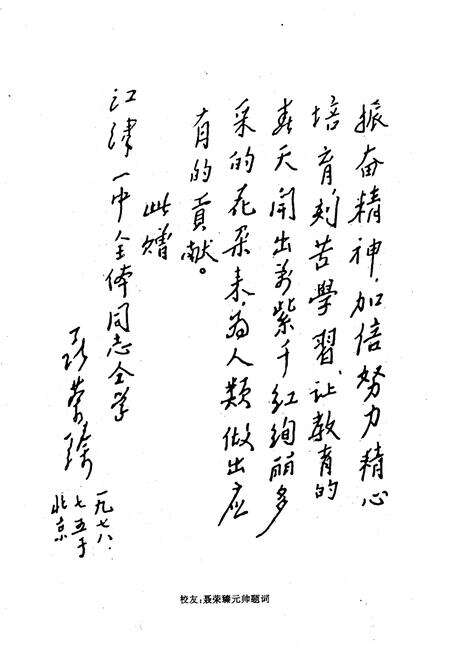 振奋精神,加倍努力精心
培育,刻苦學習,让教育的
春天開出萬紫千红绚丽多
采的花朵来,为人類做出应
有的貢献。
此赠
江津一中全体同志仝学
聂荣臻
一九七八.
七五于
北京
校友:聂荣臻元帅题词